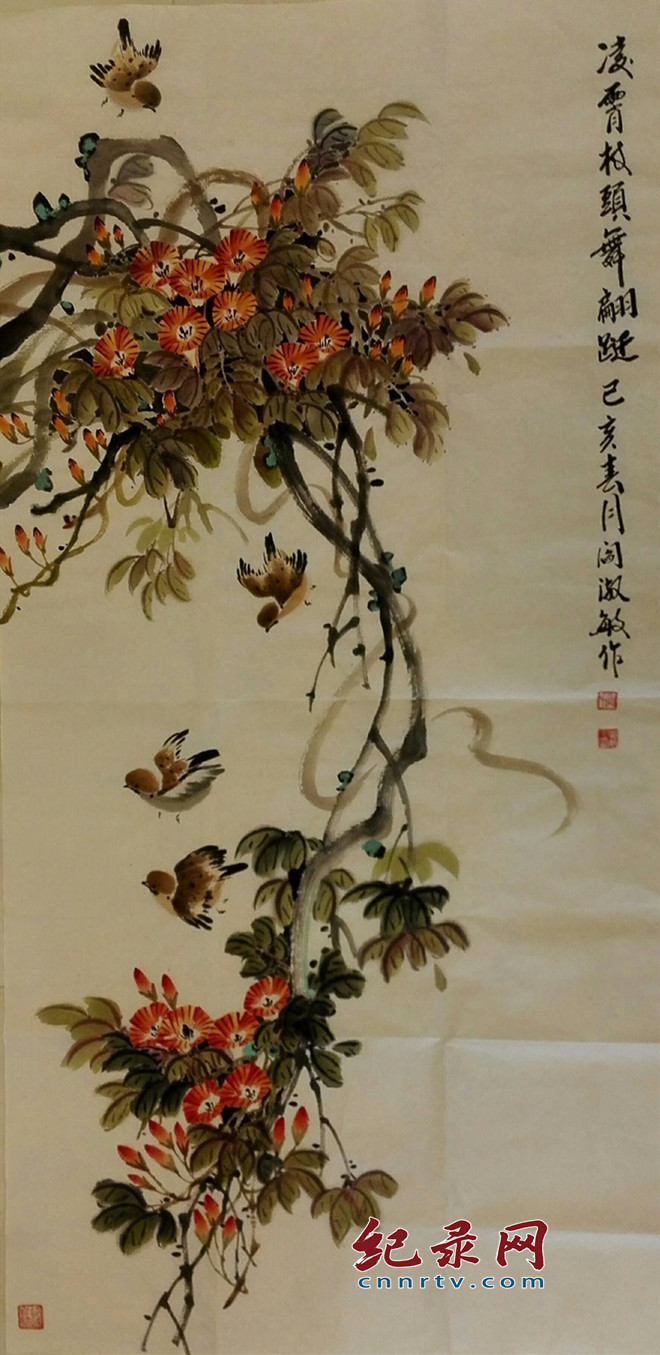 凌霄枝頭舞翩跹己亥春月阎淑敏作
纪录网
cnnrtv.com